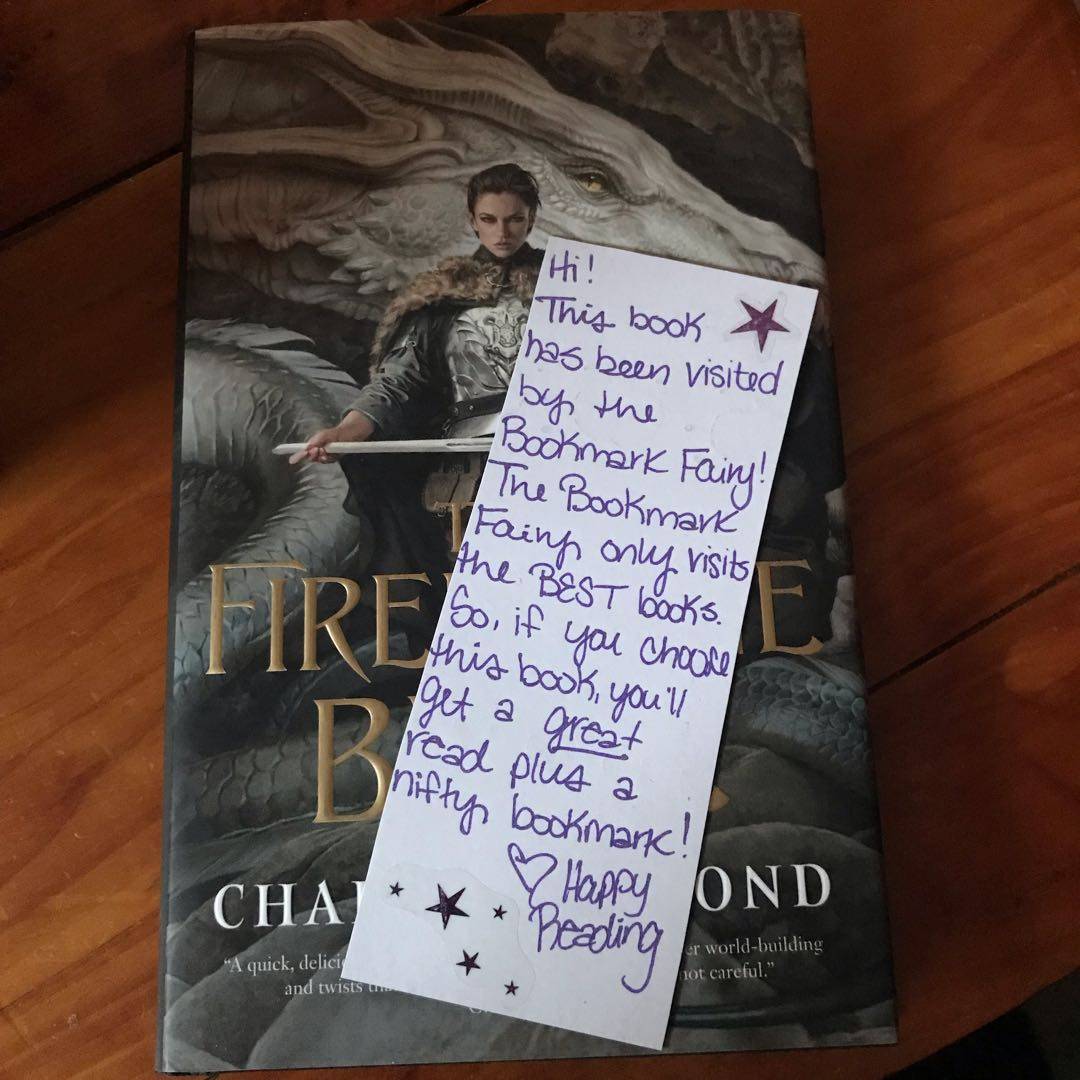 Hi!
This book
has been visited
by the
Bookmark Fairy!
The Bookmark
Fairy only visits
the BEST books.
So, if you choose
this book, you'll
get a great
read plus a
nifty bookmark!
♡ Happy
Reading
FIRE
E
B
CHA
OND
"A quick, delici
er world-building
and twists
not careful."